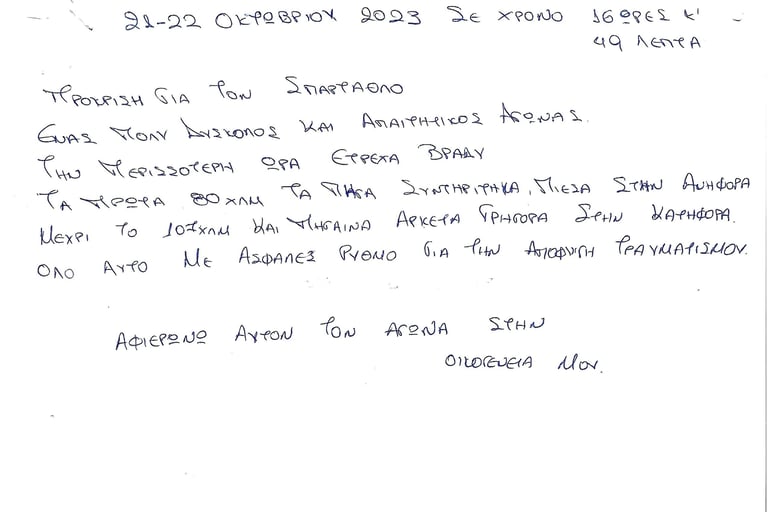 21-22 ΟΚΤΩΒΡΙΟΥ 2023 ΣΕ ΧΡΟΝΟ 16 ΩΡΕΣ Κ'
49 ΛΕΠΤΑ
ΠΡΟΚΡΙΣΗ ΓΙΑ ΤΟΝ ΣΠΑΡΤΑΘΛΟ
ΕΝΑΣ ΠΟΛΥ ΔΥΣΚΟΛΟΣ ΚΑΙ ΑΠΑΙΤΗΤΙΚΟΣ ΑΓΩΝΑΣ.
ΤΗΝ ΠΕΡΙΣΣΟΤΕΡΗ ΩΡΑ ΕΤΡΕΧΑ ΒΡΑΔΥ
ΤΑ ΠΡΩΤΑ 80 ΧΛΜ ΤΑ ΠΗΓΑ ΣΥΝΤΗΡΙΤΗΚΑ, ΠΙΕΣΑ ΣΤΗΝ ΑΝΗΦΟΡΑ
ΜΕΧΡΙ ΤΟ 107ΧΛΜ ΚΑΙ ΠΗΓΑΙΝΑ ΑΡΚΕΤΑ ΓΡΗΓΟΡΑ ΣΤΗΝ ΚΑΤΗΦΟΡΑ.
ΟΛΟ ΑΥΤΟ ΜΕ ΑΣΦΑΛΕΣ ΡΥΘΜΟ ΓΙΑ ΤΗΝ ΑΠΟΦΥΓΗ ΤΡΑΥΜΑΤΙΣΜΟΥ.
ΑΦΙΕΡΩΝΩ ΑΥΤΟΝ ΤΟΝ ΑΓΩΝΑ ΣΤΗΝ
ΟΙΚΟΓΕΝΕΙΑ ΜΟΥ.